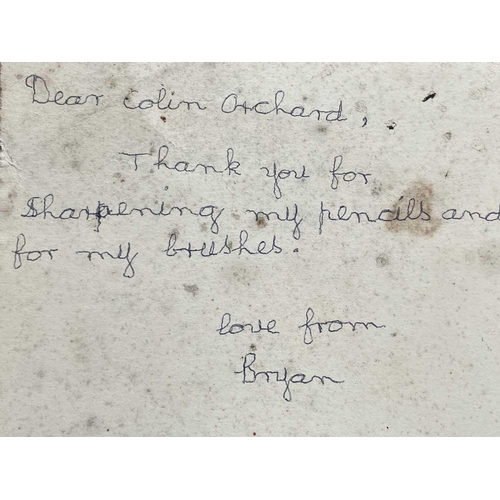 Dear Colin Orchard,
Thank you for
sharpening my pencils and
for my brushes.
love from
Bryan